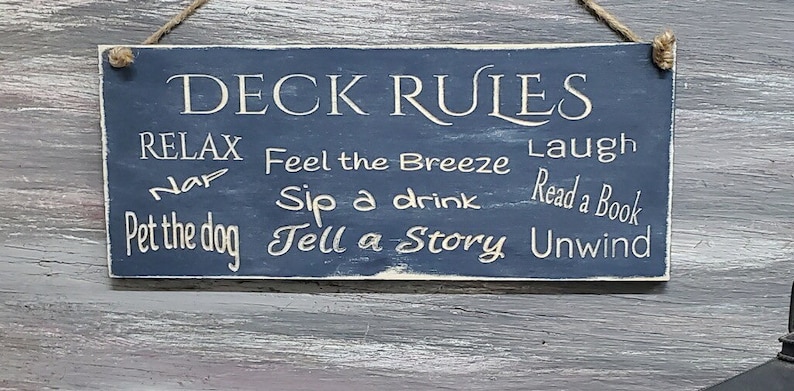 DECK RULES
RELAX
Nap
Pet the dog
Feel the Breeze
Sip a drink
Tell a Story
Laugh
Read a Book
Unwind